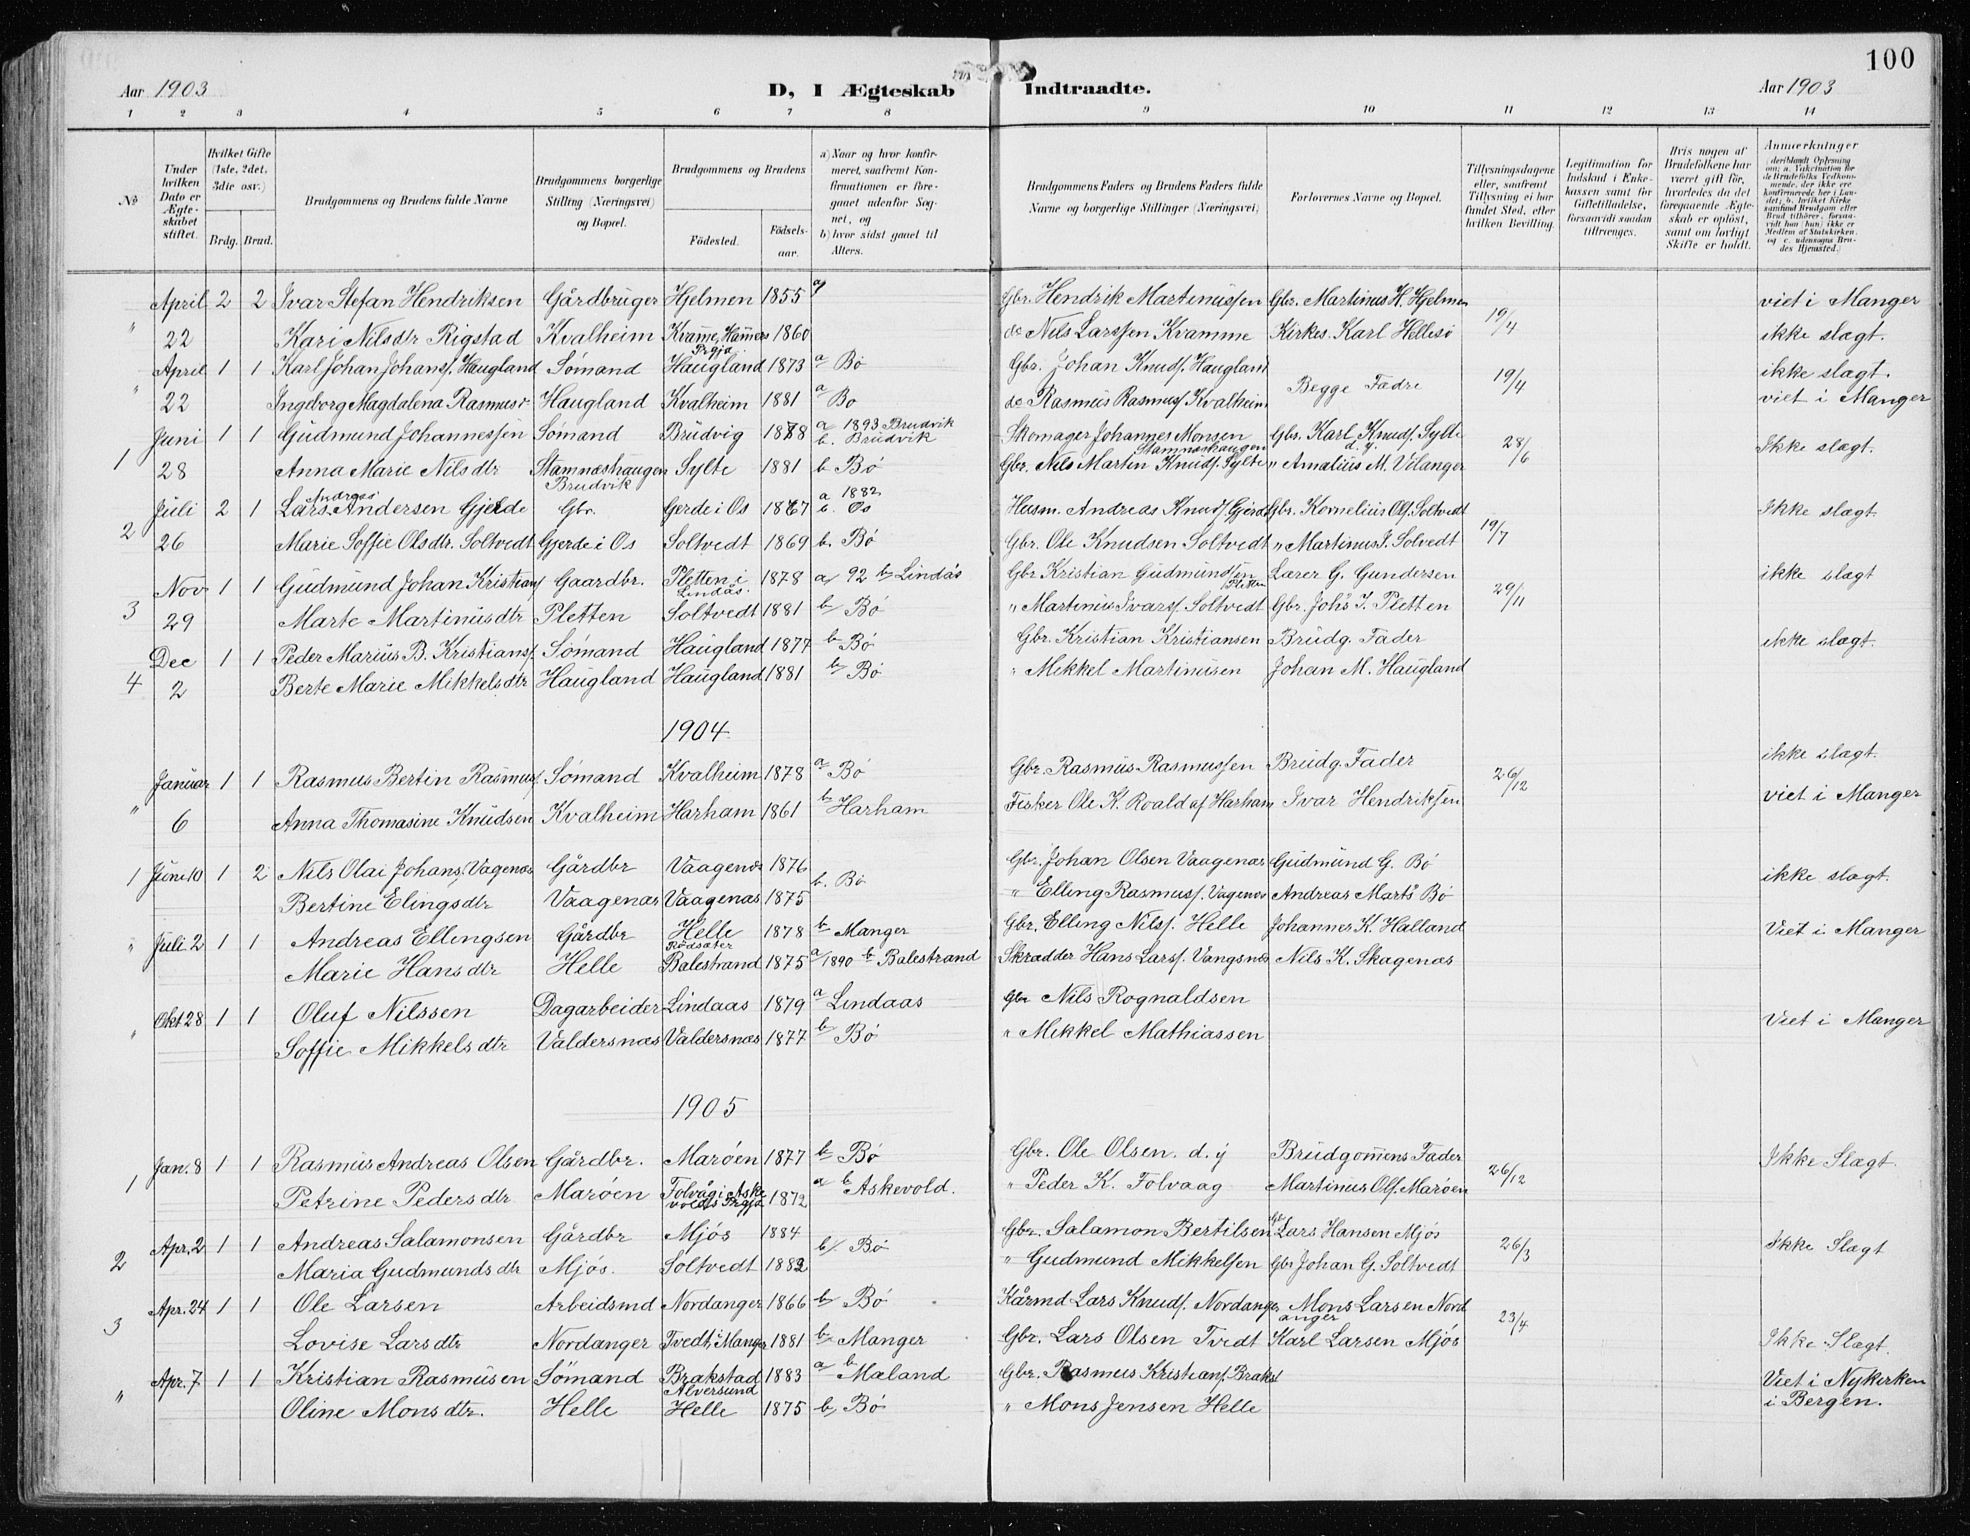 100
Aar 1903 D, I Ægteskab Indtraadte. Aar 1903
1 2 3 4 5 6 7 8 9 10 11 12 13 14
No
Under hvilken Dato er Ægteskabet stiftet.
Hvilket Gifte (1ste, 2det, 3die osv.)
Brdg. Brud.
Brudgommens og Brudens fulde Navne
Brudgommens borgerlige Stilling (Næringsvei) og Bopæl.
Brudgommens og Brudens
Fødested. Fødselsaar.
a) Naar og hvor konfirmeret, saafremt Konfirmationen er foregaaet udenfor Sognet, og
b) hvor sidst gaaet til Alters.
Brudgommens Faders og Brudens Faders fulde Navne og borgerlige Stillinger (Næringsvei)
Forlovernes Navne og Bopæl.
Tillysningsdagene eller, saafremt Tillysning ei har fundet Sted, efter hvilken Bevilling.
Legitimation for Indskud i Enkekassen samt for Giftetilladelse, forsaavidt saadan tiltrænges.
Hvis nogen af Brudefolkene har været gift før, hvorledes da det foregaaende Ægteskab er opløst, samt om lovligt Skifte er holdt.
Anmerkninger
(deriblandt Oplysning om: a. Vakcination for de Brudefolks Vedkommende, der ikke ere konfirmerede her i Landet; b. hvilket Kirkesamfund Brudgom eller Brud tilhører, forsaavidt han (hun) ikke er Medlem af Statskirken, og c. udensogns Brudes Hjemsted.)
" April 2 2 Ivar Stefan Hendriksen Gårdbruger Hjelmen 1855 a/ Gbr. Hendrik Martinussen Gbr. Martinus H. Hjelmen 19/4 viet i Manger
22 Kari Nilsdtr Rigstad Kvalheim Kvamme, Hammers Prgjd. 1860 do Nils Larssen Kvamme Kirkes. Karl Hellesø ikke slagt.
" April 1 1 Karl Johan Johans. Haugland Sømand Haugland 1873 a Bø Gbr. Johan Knuds. Haugland Begge Fadre 19/4 ikke slagt.
22 Ingeborg Magdalena Rasmusd. Haugland Kvalheim 1881 a Bø do Rasmus Rasmuss. Kvalheim viet i Manger
1 Juni 1 1 Gudmund Johannessen Sømand Brudvig 1878 a 1893 Brudvik b. Brudvik Skomager Johannes Monsen Stamnæshaugen Gbr. Karl Knuds. Sylte d. y. 28/6 Ikke slagt.
28 Anna Marie Nilsdtr Stamnæshaugen Brudvik Sylte 1881 b Bø Gbr. Nils Martin Knuds. Sylte " Amalius M. Vilanger
2 Juli 2 1 Lars Andreas Andersen Gjerde Gbr. Gerde i Os 1867 a 1882 b. Os Husm. Andreas Knuds. Gjerde Gbr. Kornelius Ols. Soltvedt 19/7 Ikke slagt.
26 Marie Soffie Olsdtr. Soltvedt Gjerde i Os Soltvedt 1869 b. Bø Gbr. Ole Knudsen Soltvedt " Martinus I. Solvedt
3 Nov 1 1 Gudmund Johan Kristians. Gaardbr. Pletten i Lindås. 1878 a/ 92 b/ Lindås Gbr Kristian Gudmundsen Pletten Lærer G. Gundersen 29/11 ikke slagt
29 Marte Martinusdtr Pletten Soltvedt 1881 b/ Bø " Martinus Ivars. Soltvedt Gbr. Johs I. Pletten
4 Dec 1 1 Peder Marius B. Kristians. Sømand Haugland 1874 b Bø Gbr. Kristian Kristiansen Brudg. Fader ikke slagt.
2 Berte Marie Mikkelsdtr Haugland Haugland 1881 b/ Bø " Mikkel Martinusen Johan M. Haugland
1904
" Januar 1 1 Rasmus Bertin Rasmuss. Sømand Kvalheim 1878 a Bø Gbr. Rasmus Rasmussen Brudg. Fader 26/12 ikke slagt.
6 Anna Thomasine Knudsen Kvalheim Harham 1861 b Harham Fisker Ole K. Roald af Harham Ivar Hendriksen viet i Manger
1 Juni 10 1 2 Nils Olai Johans. Vagenæs Gårdbr Vaagenæs 1876 b. Bø Gbr. Johan Olsen Vaagenæs Gudmund G. Bø ikke slagt.
Bertine Elingsdtr Vaagenæs Vaagenæs 1875 " Elling Rasmuss. Vagenæs Andreas Marts Bø
" Juli 2 1 1 Andreas Ellingsen Gårdbr Helle 1878 b Manger Gbr. Elling Nilss. Helle Johannes K. Halland Viet i Manger
Marie Hansdtr Helle Rødsæter Balestrand 1875 a/1890 b Balestrand Skrædder Hans Larss. Vangsnæs Nils K. Skagenæs
" Okt 28 1 1 Oluf Nilssen Dagarbeider Lindaas 1879 a Lindaas Gbr Nils Rognaldsen Viet i Manger
Soffie Mikkelsdtr Valdersnæs Valdersnæs 1877 b Bø " Mikkel Mathiassen
1905
1 Jan. 8 1 1 Rasmus Andreas Olsen Gårdbr. Marøen 1877 b Bø Gbr. Ole Olsen. d. y Brudgommens Fader 26/12 Ikke Slagt.
Petrine Pedersdtr. Marøen Folvåg i Askevolds Prgjd 1872 a b Askevold. " Peder K. Folvaag Martinus Ols. Marøen
2 Apr. 2 1 1 Andreas Salamonsen Gårdbr Mjøs 1884 b/ Bø Gbr. Salamon Bertilsen Gbr Lars Hansen Mjøs 26/3 Ikke Slagt
Maria Gudmundsdtr Mjøs. Soltvedt 1882 " Gudmund Mikkelsen Gbr Johan G. Soltvedt
3 Apr. 24 1 1 Ole Larsen Arbeidsmd Nordanger 1866 b/ Bø Kårmd Lars Knuds. Nordanger Mons Larsen Nordanger 23/4
Lovise Larsdtr Nordanger Tvedt i Manger 1881 b/ Manger Gbr. Lars Olsen Tvedt Karl Larsen Mjøs Ikke Slagt.
" Apr. 7 1 1 Kristian Rasmusen Sømand Brakstad Alversund 1883 a b Mæland Gbr. Rasmus Kristians. Brakst Viet i Nykirken
Oline Monsdtr. Helle Helle 1875 b/ Bø " Mons Jensen Helle i Bergen.